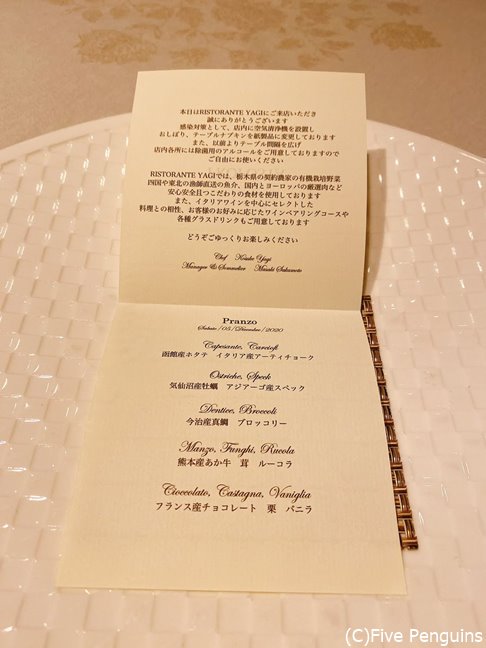 本日はRISTORANTE YAGIにご来店いただき
誠にありがとうございます
感染対策として、店内に空気清浄機を設置し
おしぼり、テーブルナプキンを紙製品に変更しております
また、以前よりテーブル間隔を広げ
店内各所には除菌用のアルコールをご用意しておりますので
ご自由にお使いください
RISTORANTE YAGIでは、栃木県の契約農家の有機栽培野菜
四国や東北の漁師直送の魚介、国内とヨーロッパの厳選肉など
安心安全且つこだわりの食材を使用しております
また、イタリアワインを中心にセレクトした
料理との相性、お客様のお好みに応じたワインペアリングコースや
各種グラスドリンクもご用意しております
どうぞごゆっくりお楽しみください
Chef Kosuke Yagi
Manager & Sommelier Masaki Sakamoto
Pranzo
Sabato / 05 / Dicembre / 2020
Capesante, Carciofi
函館産ホタテ イタリア産アーティチョーク
Ostriche, Speck
気仙沼産牡蠣 アジアーゴ産スペック
Dentice, Broccoli
今治産真鯛 ブロッコリー
Manzo, Funghi, Rucola
熊本産あか牛 茸 ルーコラ
Cioccolato, Castagna, Vaniglia
フランス産チョコレート 栗 バニラ
(C)Five Penguins